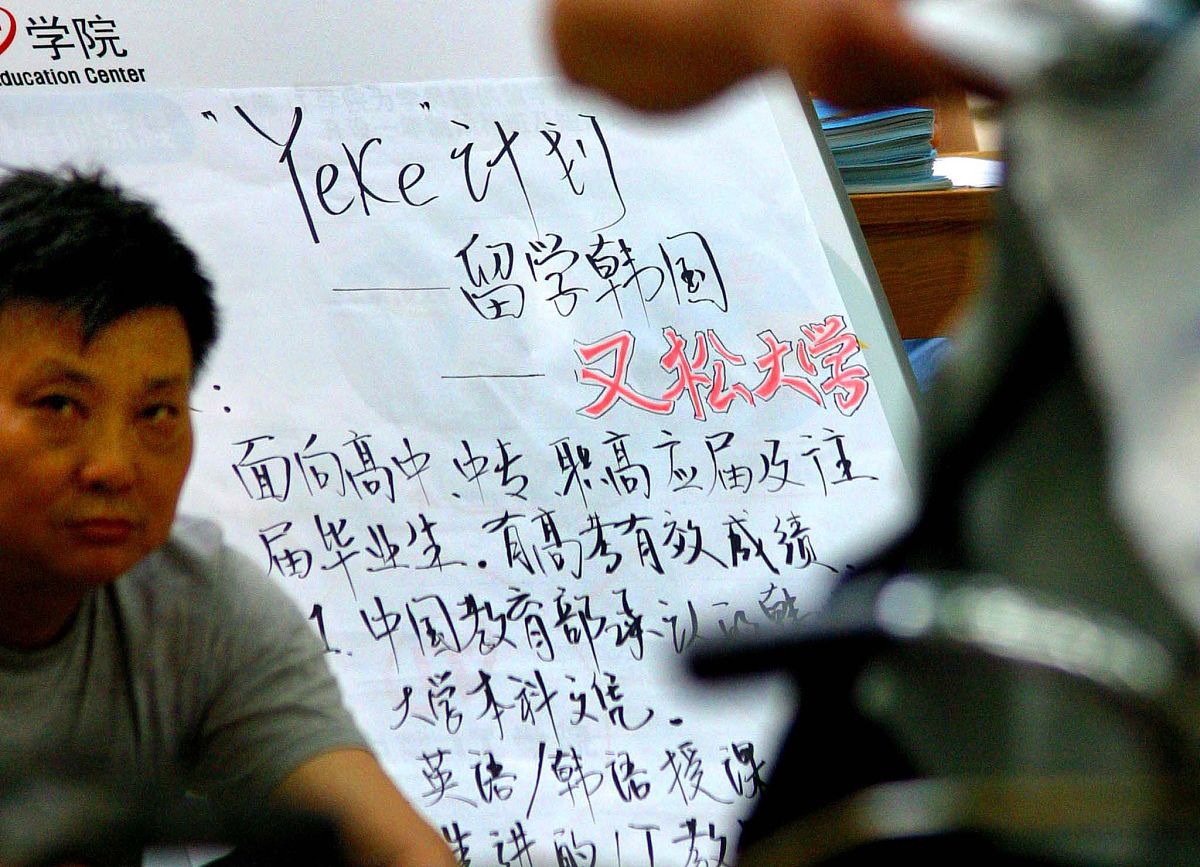 学院
ducation Center
"Yeke"计划
——留学韩国
——又松大学
面向高中.中专.职高应届及往
届毕业生.有高考有效成绩.
1.中国教育部承认的韩
大学本科文凭.
英语/韩语授课
先进的IT教